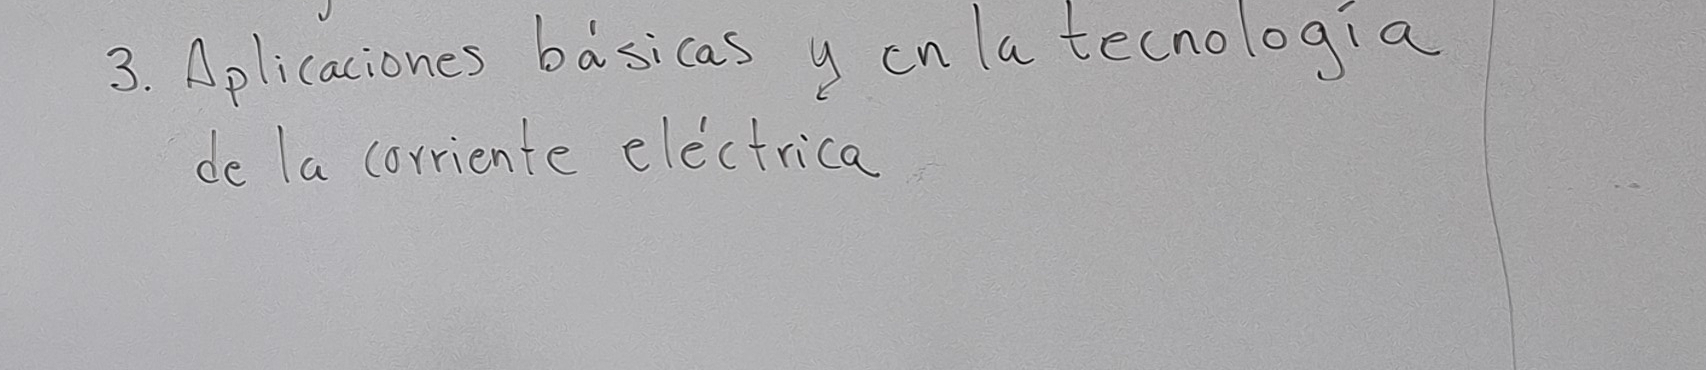 3. Aplicaciones básicas y en la tecnología
de la corriente eléctrica